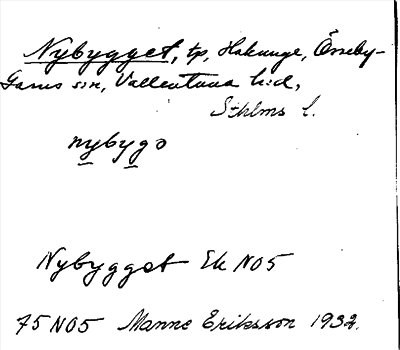 Nybygget, tp, Hakunge, Össeby-
Garns sn, Vallentuna h:d,
Sthlms l.
nybygo
Nybygget Ek NO5
75 NO5 Manne Eriksson 1932.